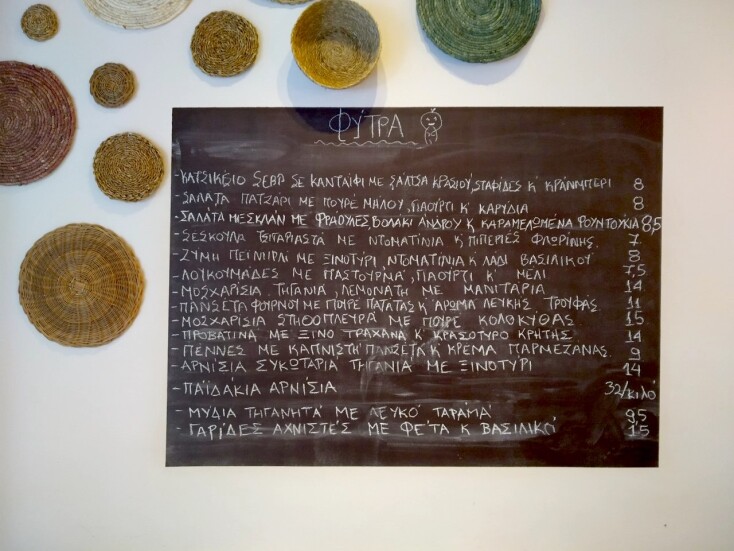 ΦΥΤΡΑ
-ΚΑΤΣΙΚΕΙΟ SEBP ΣΕ ΚΑΝΤΑΪΦΙ ΜΕ ΣΑΛΤΣΑ ΚΡΑΣΙΟΥ, ΣΤΑΦΙΔΕΣ Κ' ΚΡΑΝΜΠΕΡΙ 8
-ΣΑΛΑΤΑ ΠΑΤΖΑΡΙ ΜΕ ΠΟΥΡΕ ΜΗΛΟΥ, ΓΙΑΟΥΡΤΙ Κ' ΚΑΡΥΔΙΑ 8
-ΣΑΛΑΤΑ ΜΕΣΚΛΑΝ ΜΕ ΦΡΑΟΥΛΕΣ, ΒΟΛΑΚΙ ΑΝΔΡΟΥ Κ ΚΑΡΑΜΕΛΩΜΕΝΑ ΦΟΥΝΤΟΥΚΙΑ 8,5
-ΣΕΣΚΟΥΛΑ ΤΣΙΓΑΡΙΑΣΤΑ ΜΕ ΝΤΟΜΑΤΙΝΙΑ Κ ΠΙΠΕΡΙΕΣ ΦΛΩΡΙΝΗΣ. 7
-ΖΥΜΗ ΠΕΪΝΙΡΛΙ ΜΕ ΞΙΝΟΤΥΡΙ, ΝΤΟΜΑΤΙΝΙΑ Κ ΛΑΔΙ ΒΑΣΙΛΙΚΟΥ 8
-ΛΟΥΚΟΥΜΑΔΕΣ ΜΕ ΠΑΣΤΟΥΡΜΑ, ΓΙΑΟΥΡΤΙ Κ' ΜΕΛΙ 7,5
-ΜΟΣΧΑΡΙΣΙΑ ΤΗΓΑΝΙΑ, ΛΕΜΟΝΑΤΗ ΜΕ ΜΑΝΙΤΑΡΙΑ 14
-ΠΑΝΣΕΤΑ ΦΟΥΡΝΟΥ ΜΕ ΠΟΥΡΕ ΠΑΤΑΤΑΣ Κ' ΑΡΩΜΑ ΛΕΥΚΗΣ ΤΡΟΥΦΑΣ 11
-ΜΟΣΧΑΡΙΣΙΑ ΣΤΗΘΟΠΛΕΥΡΑ ΜΕ ΠΟΥΡΕ ΚΟΛΟΚΥΘΑΣ 15
-ΠΡΟΒΑΤΙΝΑ ΜΕ ΞΙΝΟ ΤΡΑΧΑΝΑ Κ' ΚΡΑΣΟΤΥΡΟ ΚΡΗΤΗΣ 14
-ΠΕΝΝΕΣ ΜΕ ΚΑΠΝΙΣΤΗ ΠΑΝΣΕΤΑ Κ' ΚΡΕΜΑ ΠΑΡΜΕΖΑΝΑΣ. 9
-ΑΡΝΙΣΙΑ ΣΥΚΩΤΑΡΙΑ ΤΗΓΑΝΙΑ ΜΕ ΞΙΝΟΤΥΡΙ 14
-ΠΑΪΔΑΚΙΑ ΑΡΝΙΣΙΑ 32/κιλό
-ΜΥΔΙΑ ΤΗΓΑΝΗΤΑ ΜΕ ΛΕΥΚΟ ΤΑΡΑΜΑ 9,5
-ΓΑΡΙΔΕΣ ΑΧΝΙΣΤΕΣ ΜΕ ΦΕΤΑ Κ ΒΑΣΙΛΙΚΟ 15